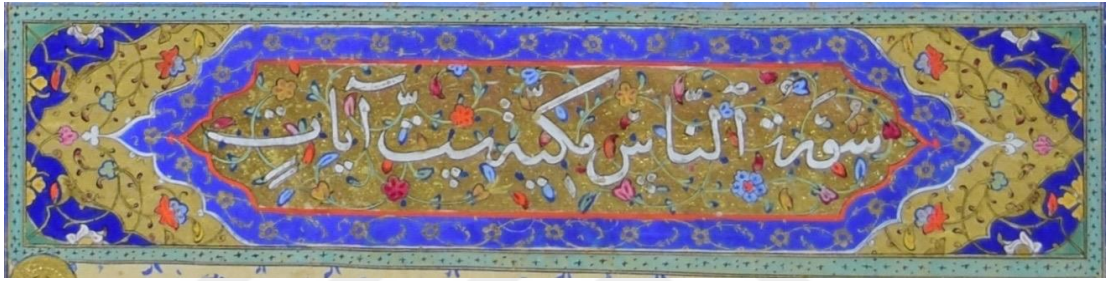 سُورَةُ ٱلنَّاسِ مَكِّيَّة سِتُّ آيَاتٍ